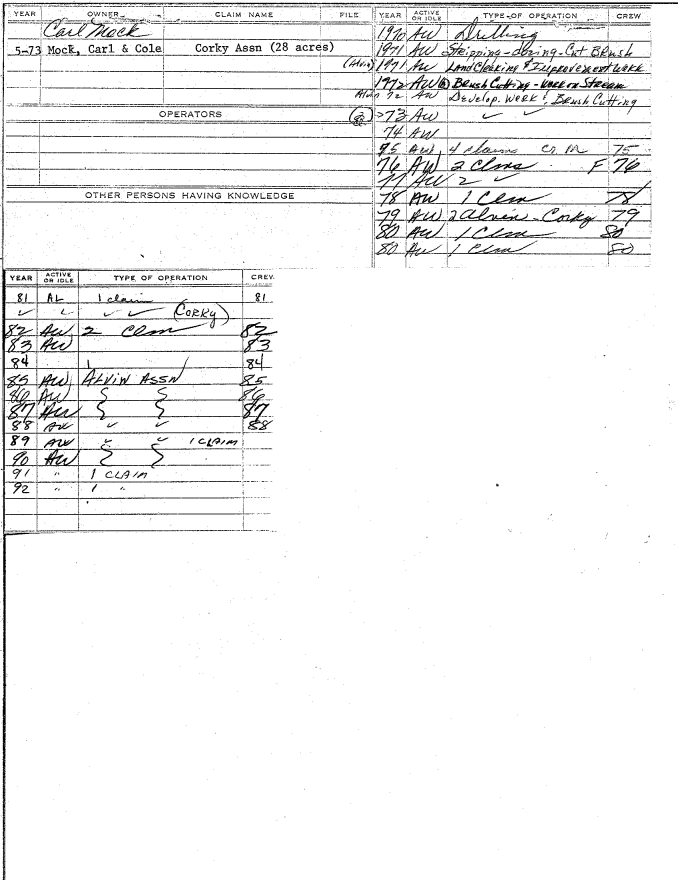 YEAR OWNER CLAIM NAME FILE
Carl Mock
5-73 Mock, Carl & Cole Corky Assn (28 acres)
OPERATORS
OTHER PERSONS HAVING KNOWLEDGE
YEAR ACTIVE OR IDLE TYPE OF OPERATION CREW
1970 AW Drilling
1971 AW Stripping-dozing-Cut Brush
(Alvin) 1971 AW Land Clearing & Improvement Work
1972 AW Brush Cutting - Work on Stream
Alvin 72 AW Develop. Work & Brush Cutting
73 AW ✓ ✓
74 AW
75 AW 4 claims Cr. M 75
76 AW 2 Clms F 76
77 AW 2 ✓
78 AW 1 Clm 78
79 AW 2 Alvin - Corky 79
80 AW 1 Clm 80
80 AW 1 Clm 80
YEAR ACTIVE OR IDLE TYPE OF OPERATION CREW
81 AL 1 claim 81
✓ ✓ ✓ ✓ (Corky)
82 AW 2 Clm 82
83 AW 83
84 84
85 AW ALVIN ASSN 85
86 AW 86
87 AW 87
88 AW ✓ ✓ 88
89 AW ✓ ✓ 1 CLAIM
90 AW
91 " 1 CLAIM
92 " 1 "